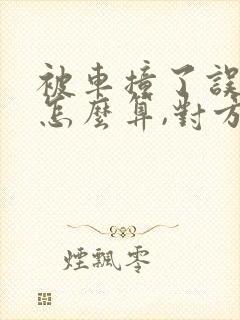 被車撞了誤
怎麼算,對方
煙飄零